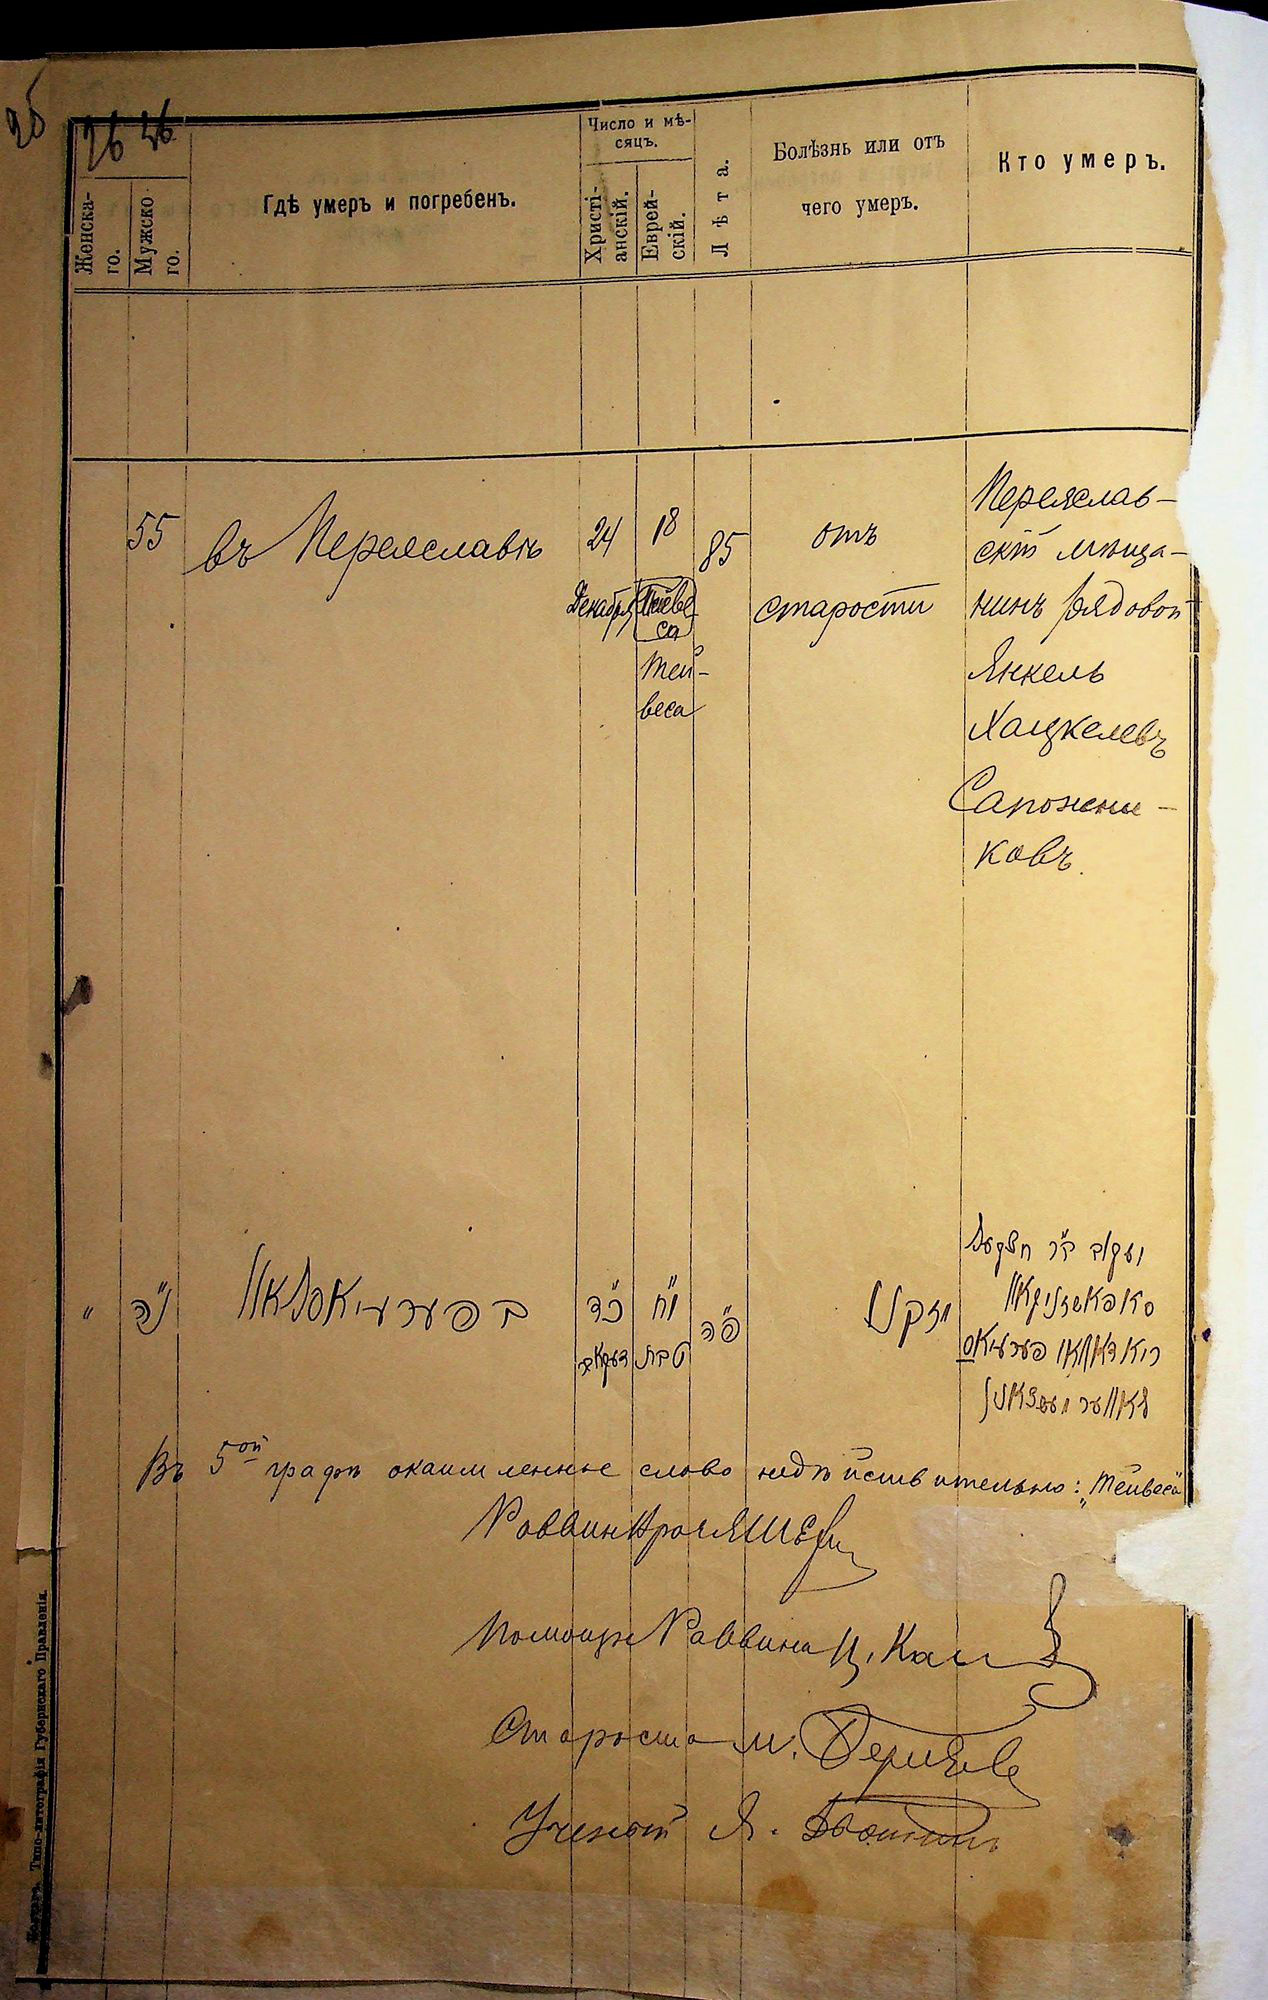 25
26 26
Женска-
го.
Мужско-
го.
Гдѣ умеръ и погребенъ.
Число и мѣ-
сяцъ.
Христі-
анскій.
Еврей-
скій.
Лѣта.
Болѣзнь или отъ
чего умеръ.
Кто умеръ.
55
въ Переяславѣ
24
Декабря
18
Тейве-
са
Тей-
веса
85
отъ
старости
Переяслав-
скій мѣща-
нинъ рядовой
Янкель
Хацкелевъ
Сапожни-
ковъ.
"
נ"ה
כ"ד
י"ח
טבת
פ"ה
זקנ
יעקב ב"ר
Въ 5ой графѣ окаймленное слово недѣйствительно: „Тейвеса"
Раввин
Помощн Раввина Ц. Кап
Староста М.
Ученый Я.
Типо-литографія Губернскаго Правленія.